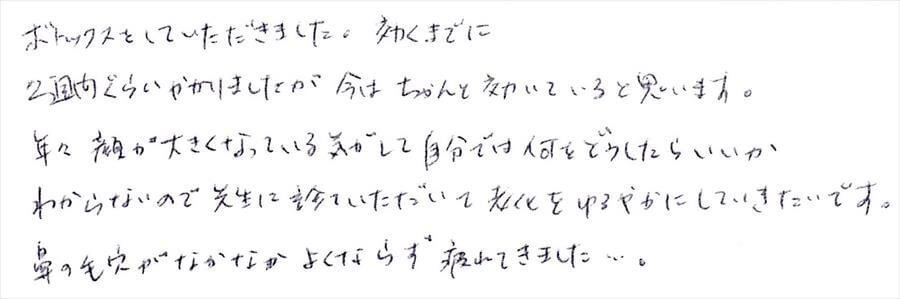 ボトックスをしていただきました。効くまでに
2週間ぐらいかかりましたが今はちゃんと効いていると思います。
年々顔が大きくなっている気がして自分では何をどうしたらいいか
わからないので先生に診ていただいて老化をゆるやかにしていきたいです。
鼻の毛穴がなかなかよくならず疲れてきました…。